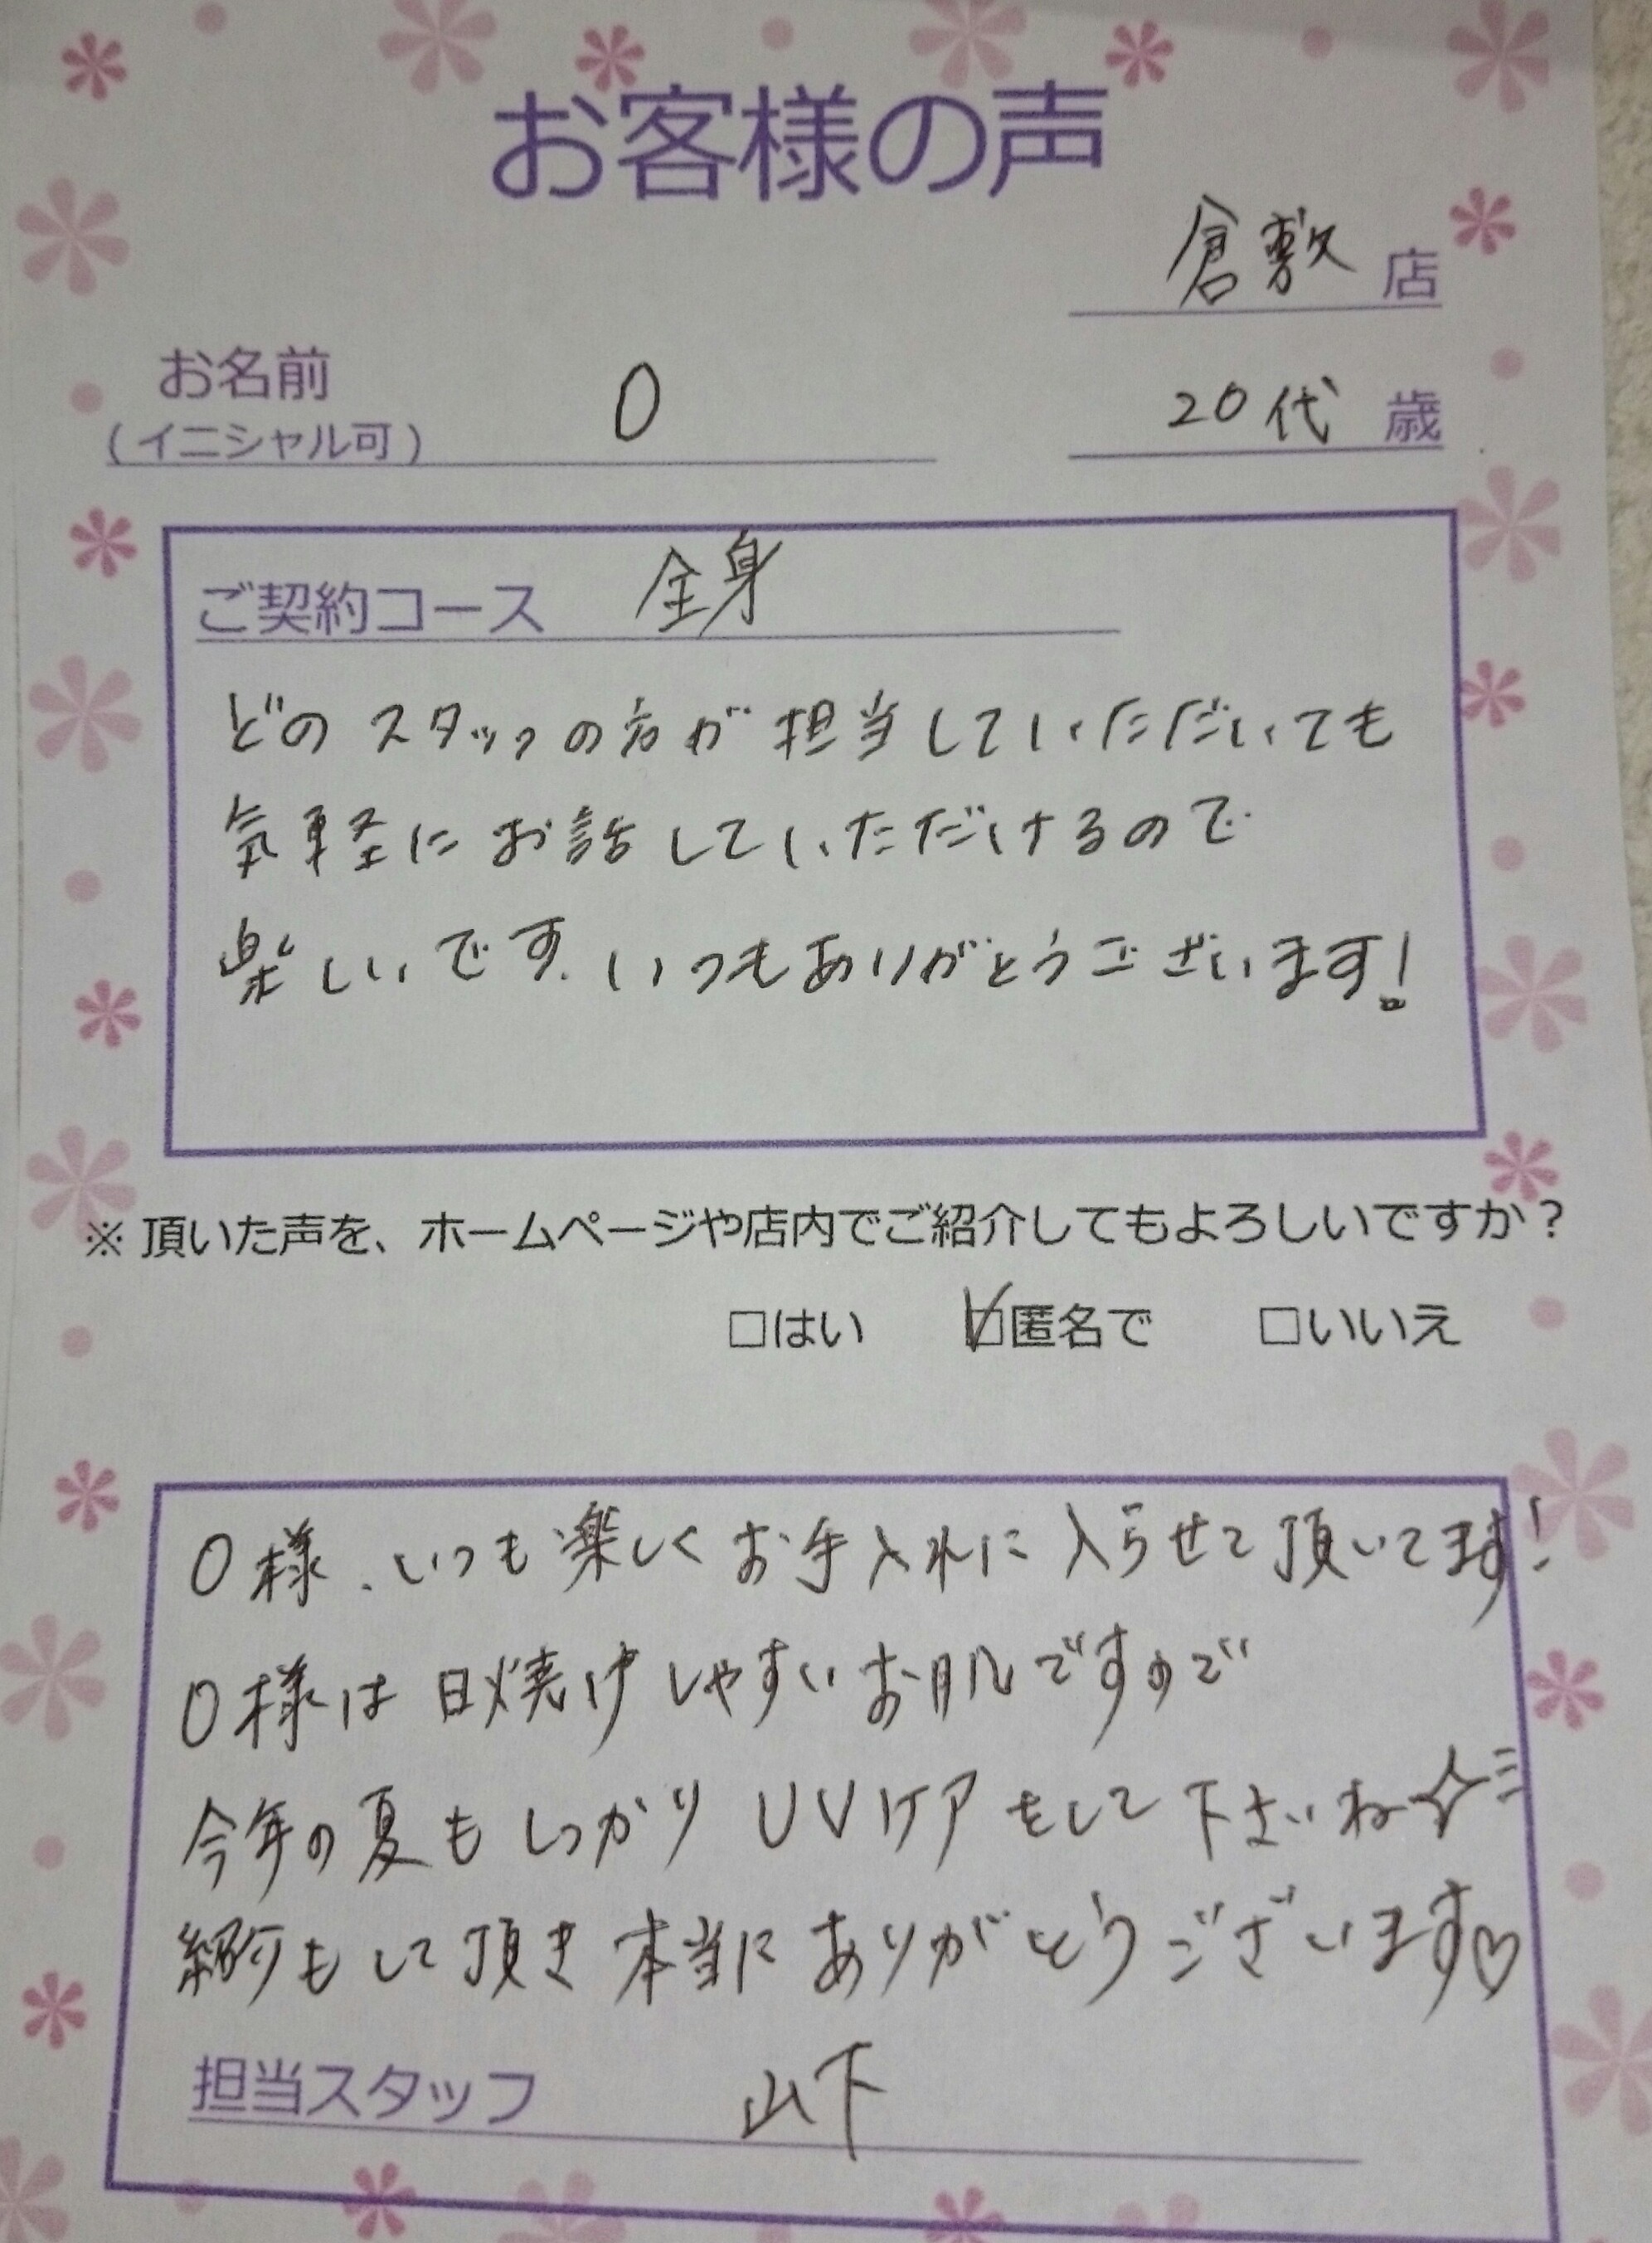 お客様の声
倉敷 店
お名前
(イニシャル可) O
20代 歳
ご契約コース 全身
どのスタッフの方が担当していただいても
気軽にお話していただけるので
楽しいです.いつもありがとうございます!
※頂いた声を、ホームページや店内でご紹介してもよろしいですか?
□はい ☑匿名で □いいえ
O様、いつも楽しくお手入れに入らせて頂いてます!
O様は日焼けしやすいお肌ですので
今年の夏もしっかりUVケアをして下さいね✧
紹介もして頂き本当にありがとうございます♡
担当スタッフ 山下